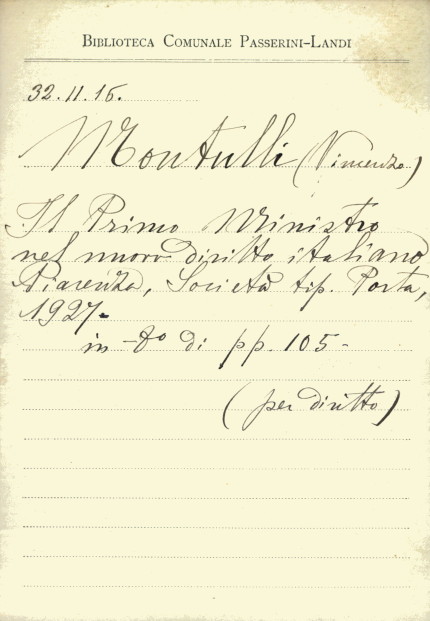 BIBLIOTECA COMUNALE PASSERINI-LANDI
32.11.16.
Montulli (Vincenzo)
Il Primo Ministro
nel nuovo diritto italiano
Piacenza, Società tip. Porta,
1927.
in -8º di pp. 105-
(per diritto)